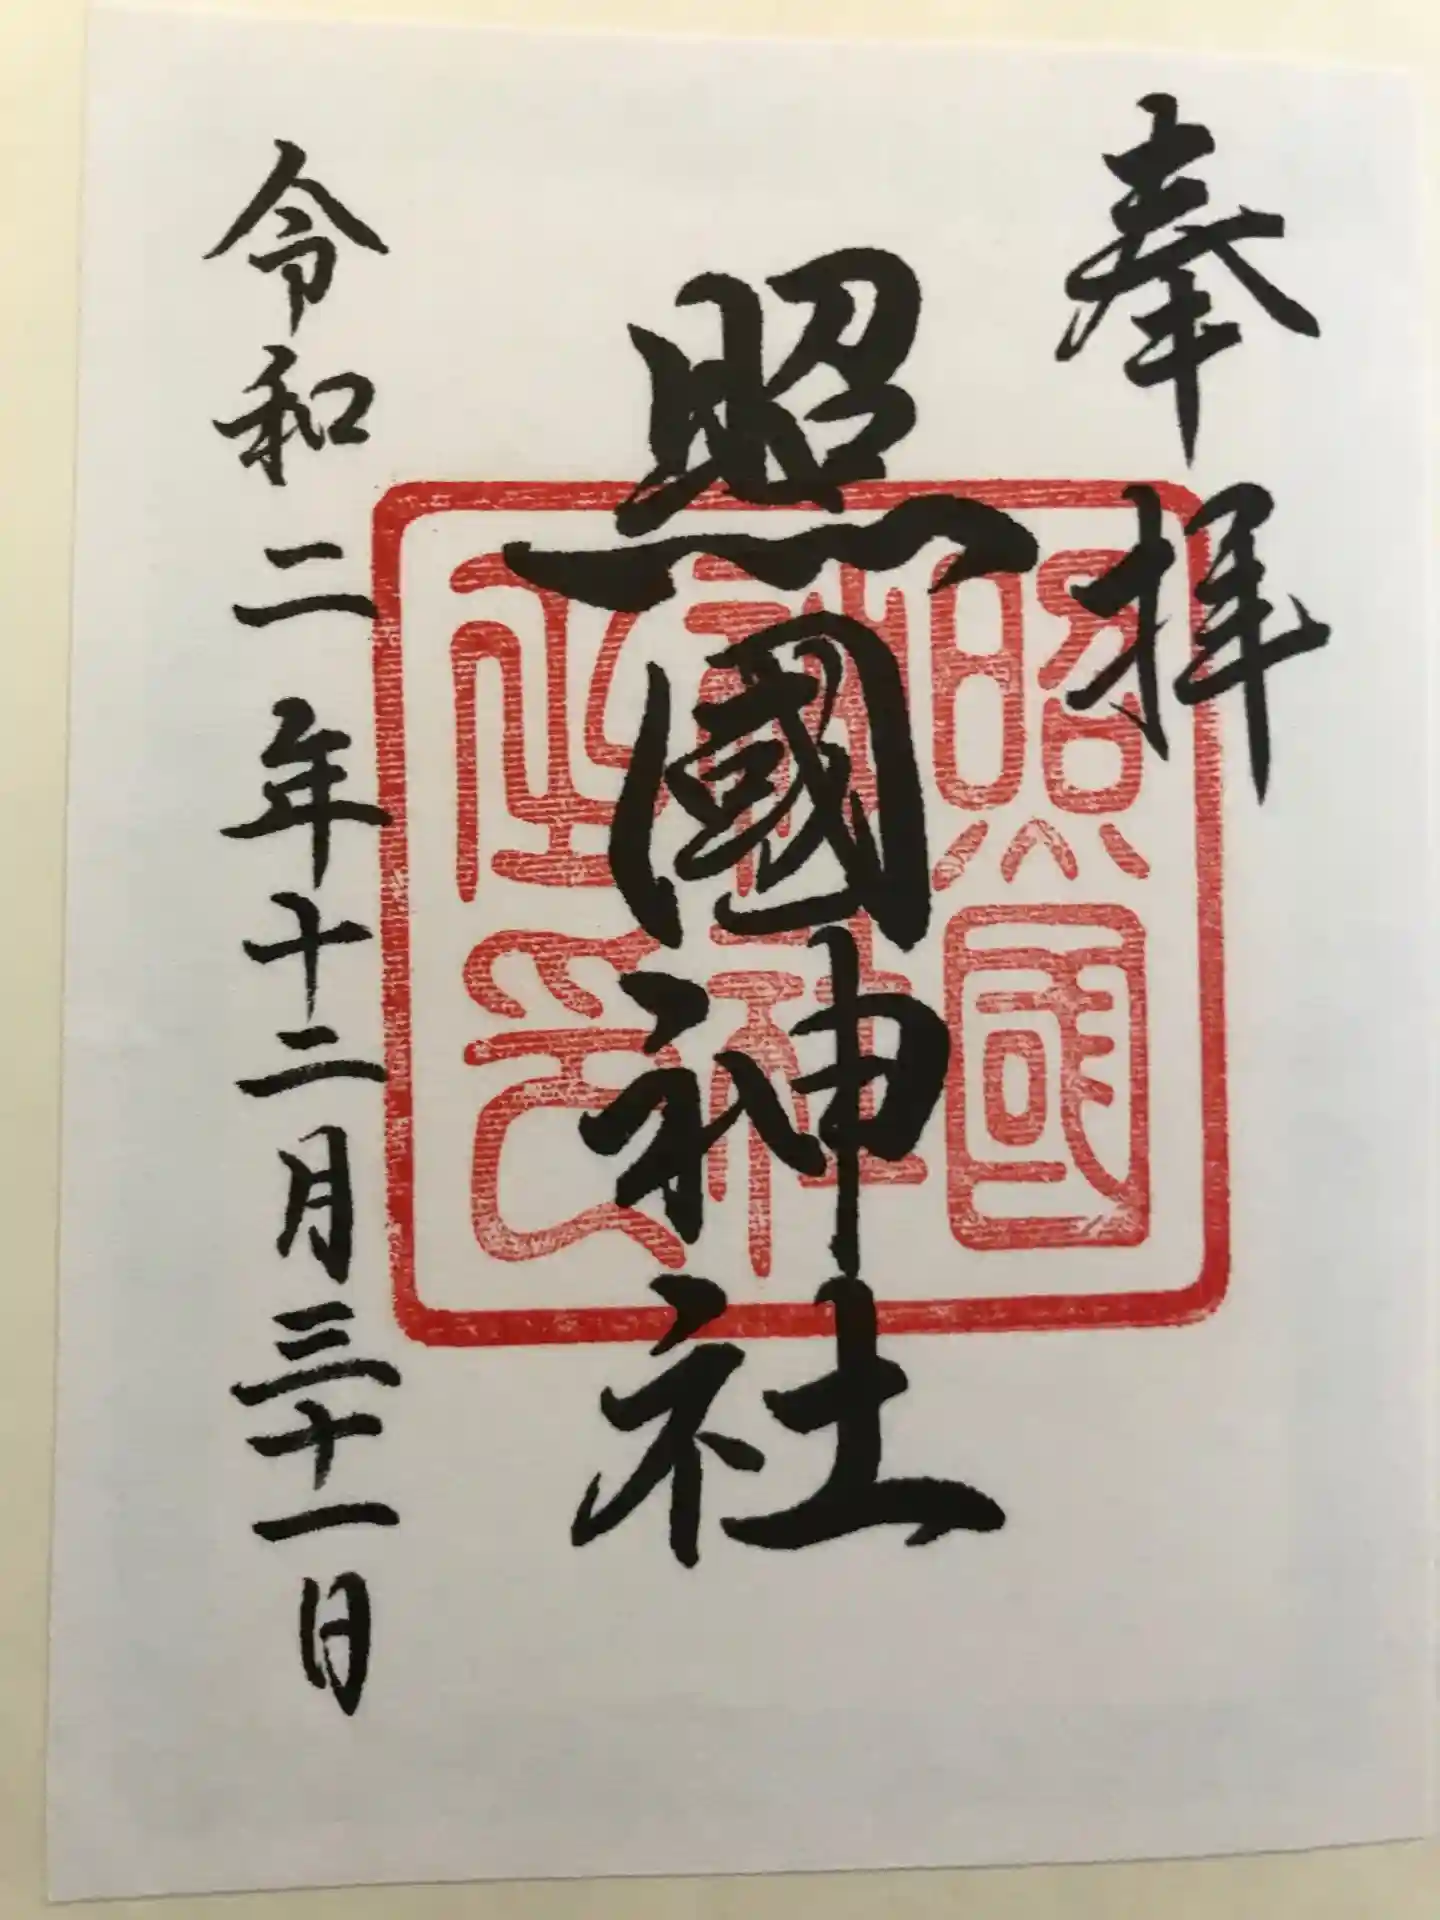 奉拝
照國神社
令和二年十二月三十一日
照國
神社
之印